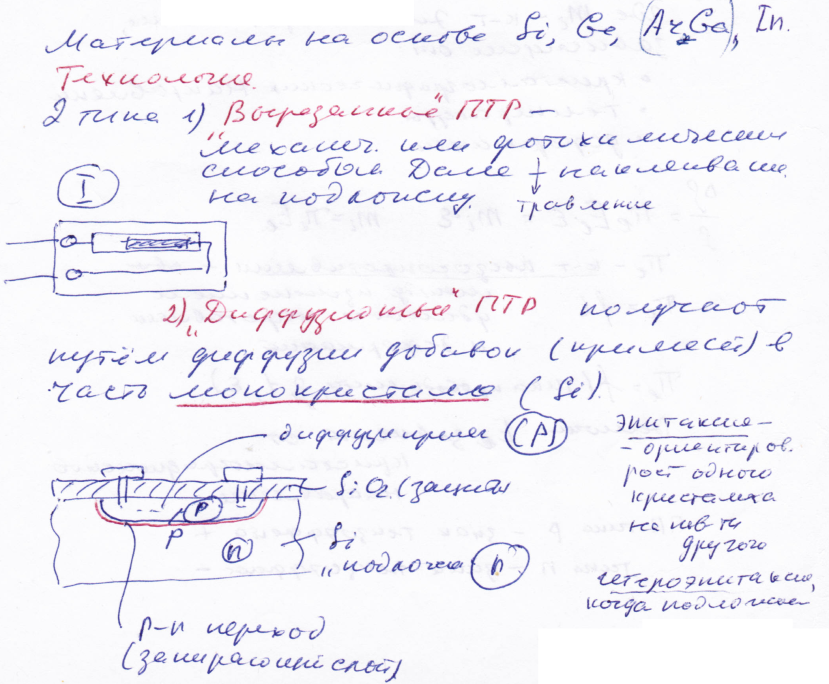 Материалы на основе Si, Ge, (Ar₂Ga), In.
Технология.
2 типа 1) "Вырезанные" ПТР –
механич. или фотохимическим
способом Далее → наклеиваем.
на подложку. травление
I
2) "Диффузионные" ПТР получают
путём диффузии добавок (примесей) в
часть монокристалла (Si).
диффузия примес (P)
SiO₂ (защитн
P
P
n
Si
"подложка" n
p-n переход
(запирающий слой)
эпитаксия –
- ориентиров.
рост одного
кристалла
на пов-ти
другого
гетероэпитаксия,
когда подложка